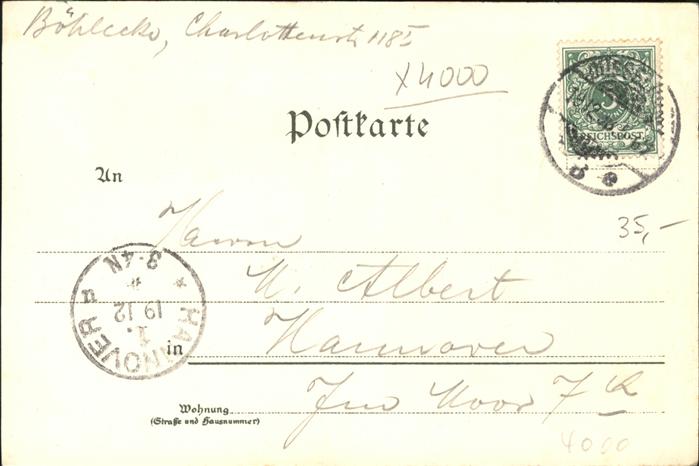 Böhlecke, Charlottenstr 118 I
x 4000
Postkarte
DÜSSEL
5
REICHSPOST
An
Herrn
35,-
A. Albert
3-4N
* HANNOVER
19 12
1.
in Hannover
Im Moor 7
Wohnung
(Straße und Hausnummer)
4000